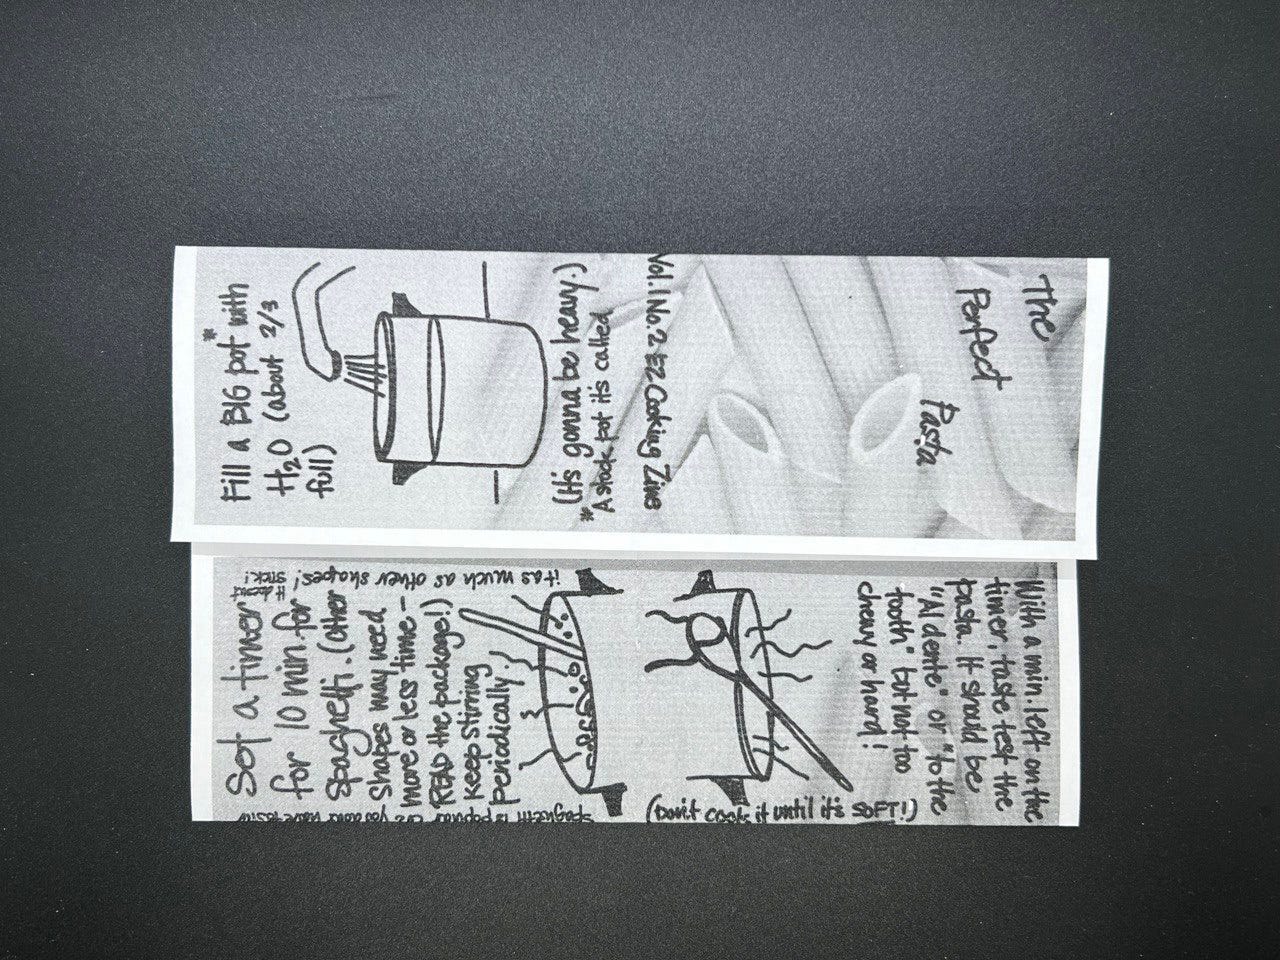 The
Perfect
Pasta
Vol. 1 No. 2 EZ Cooking Zine
Fill a BIG pot* with
H₂O (about 2/3
full)
(It's gonna be heavy.)
* A stock pot it's called
Set a timer
for 10 min. for
Spaghetti. (Other
shapes may need
more or less time -
READ the package!)
Keep stirring
periodically.
it as much as other shapes!
stick!
With a min. left on the
timer, taste test the
pasta. It should be
"Al dente" or "to the
tooth" but not too
chewy or hard!
(Don't cook it until it's SOFT!)